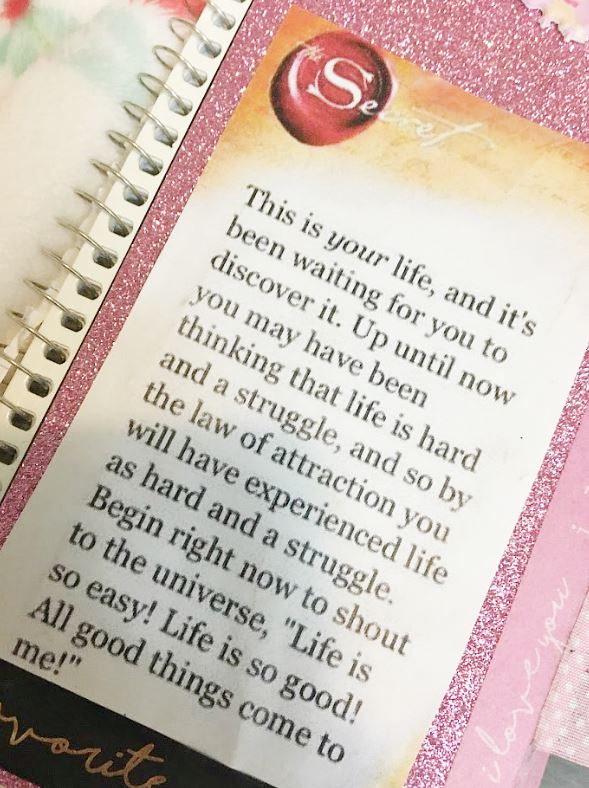 The Secret
This is your life, and it's
been waiting for you to
discover it. Up until now
you may have been
thinking that life is hard
and a struggle, and so by
the law of attraction you
will have experienced life
as hard and a struggle.
Begin right now to shout
to the universe, "Life is
so easy! Life is so good!
All good things come to
me!"
i love you